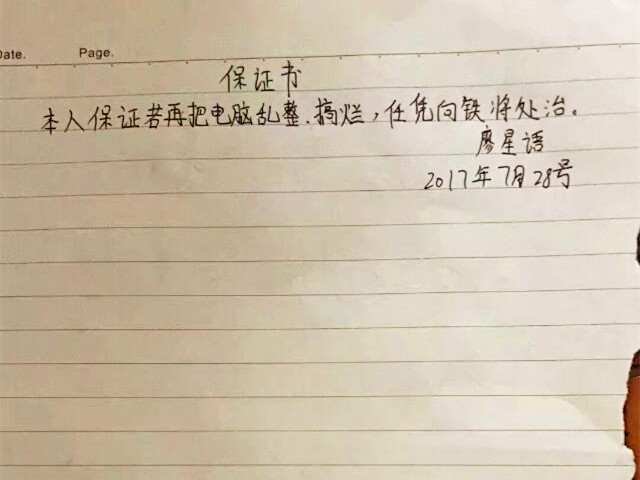 Date. Page.
保证书
本人保证若再把电脑乱整、搞烂,任凭向铁将处治。
廖星语
2017年7月28号